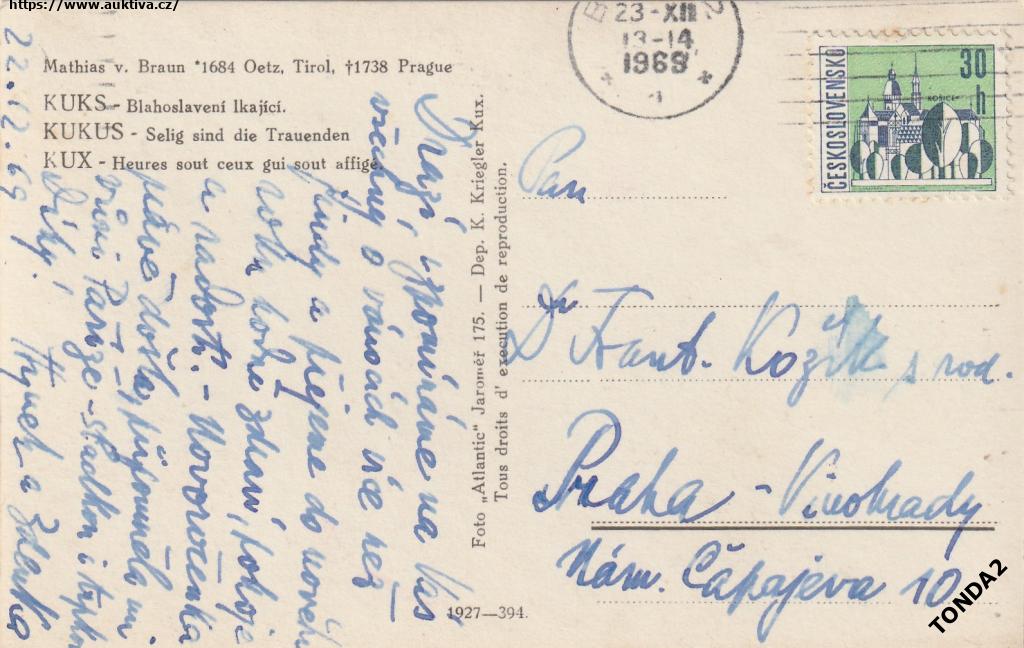 https://www.auktiva.cz/
Mathias v. Braun *1684 Oetz, Tirol, †1738 Prague
KUKS - Blahoslavení lkající.
KUKUS - Selig sind die Trauenden
KUX - Heures sout ceux gui sout affigé
22.12.69
Drazí, vzpomínáme na Vás
všechny o vánocích více než
jindy a přejeme do nového
roku hodně zdraví, pokoje
a radosti. - Novoročenka
právě došla, připomněla mi
Paříže - sladkou i
Díky!
Hynek a Zdenka
Foto „Atlantic" Jaroměř 175. — Dep. K. Kriegler Kux.
Tous droits d' execution de reproduction.
1927—394.
23-XII
13-14
1969
1
ČESKOSLOVENSKO
30 h
KOŠICE
Pan
Dr Frant. Kožík s rod.
Praha - Vinohrady
Nám. Čapajeva 10
TONDA2